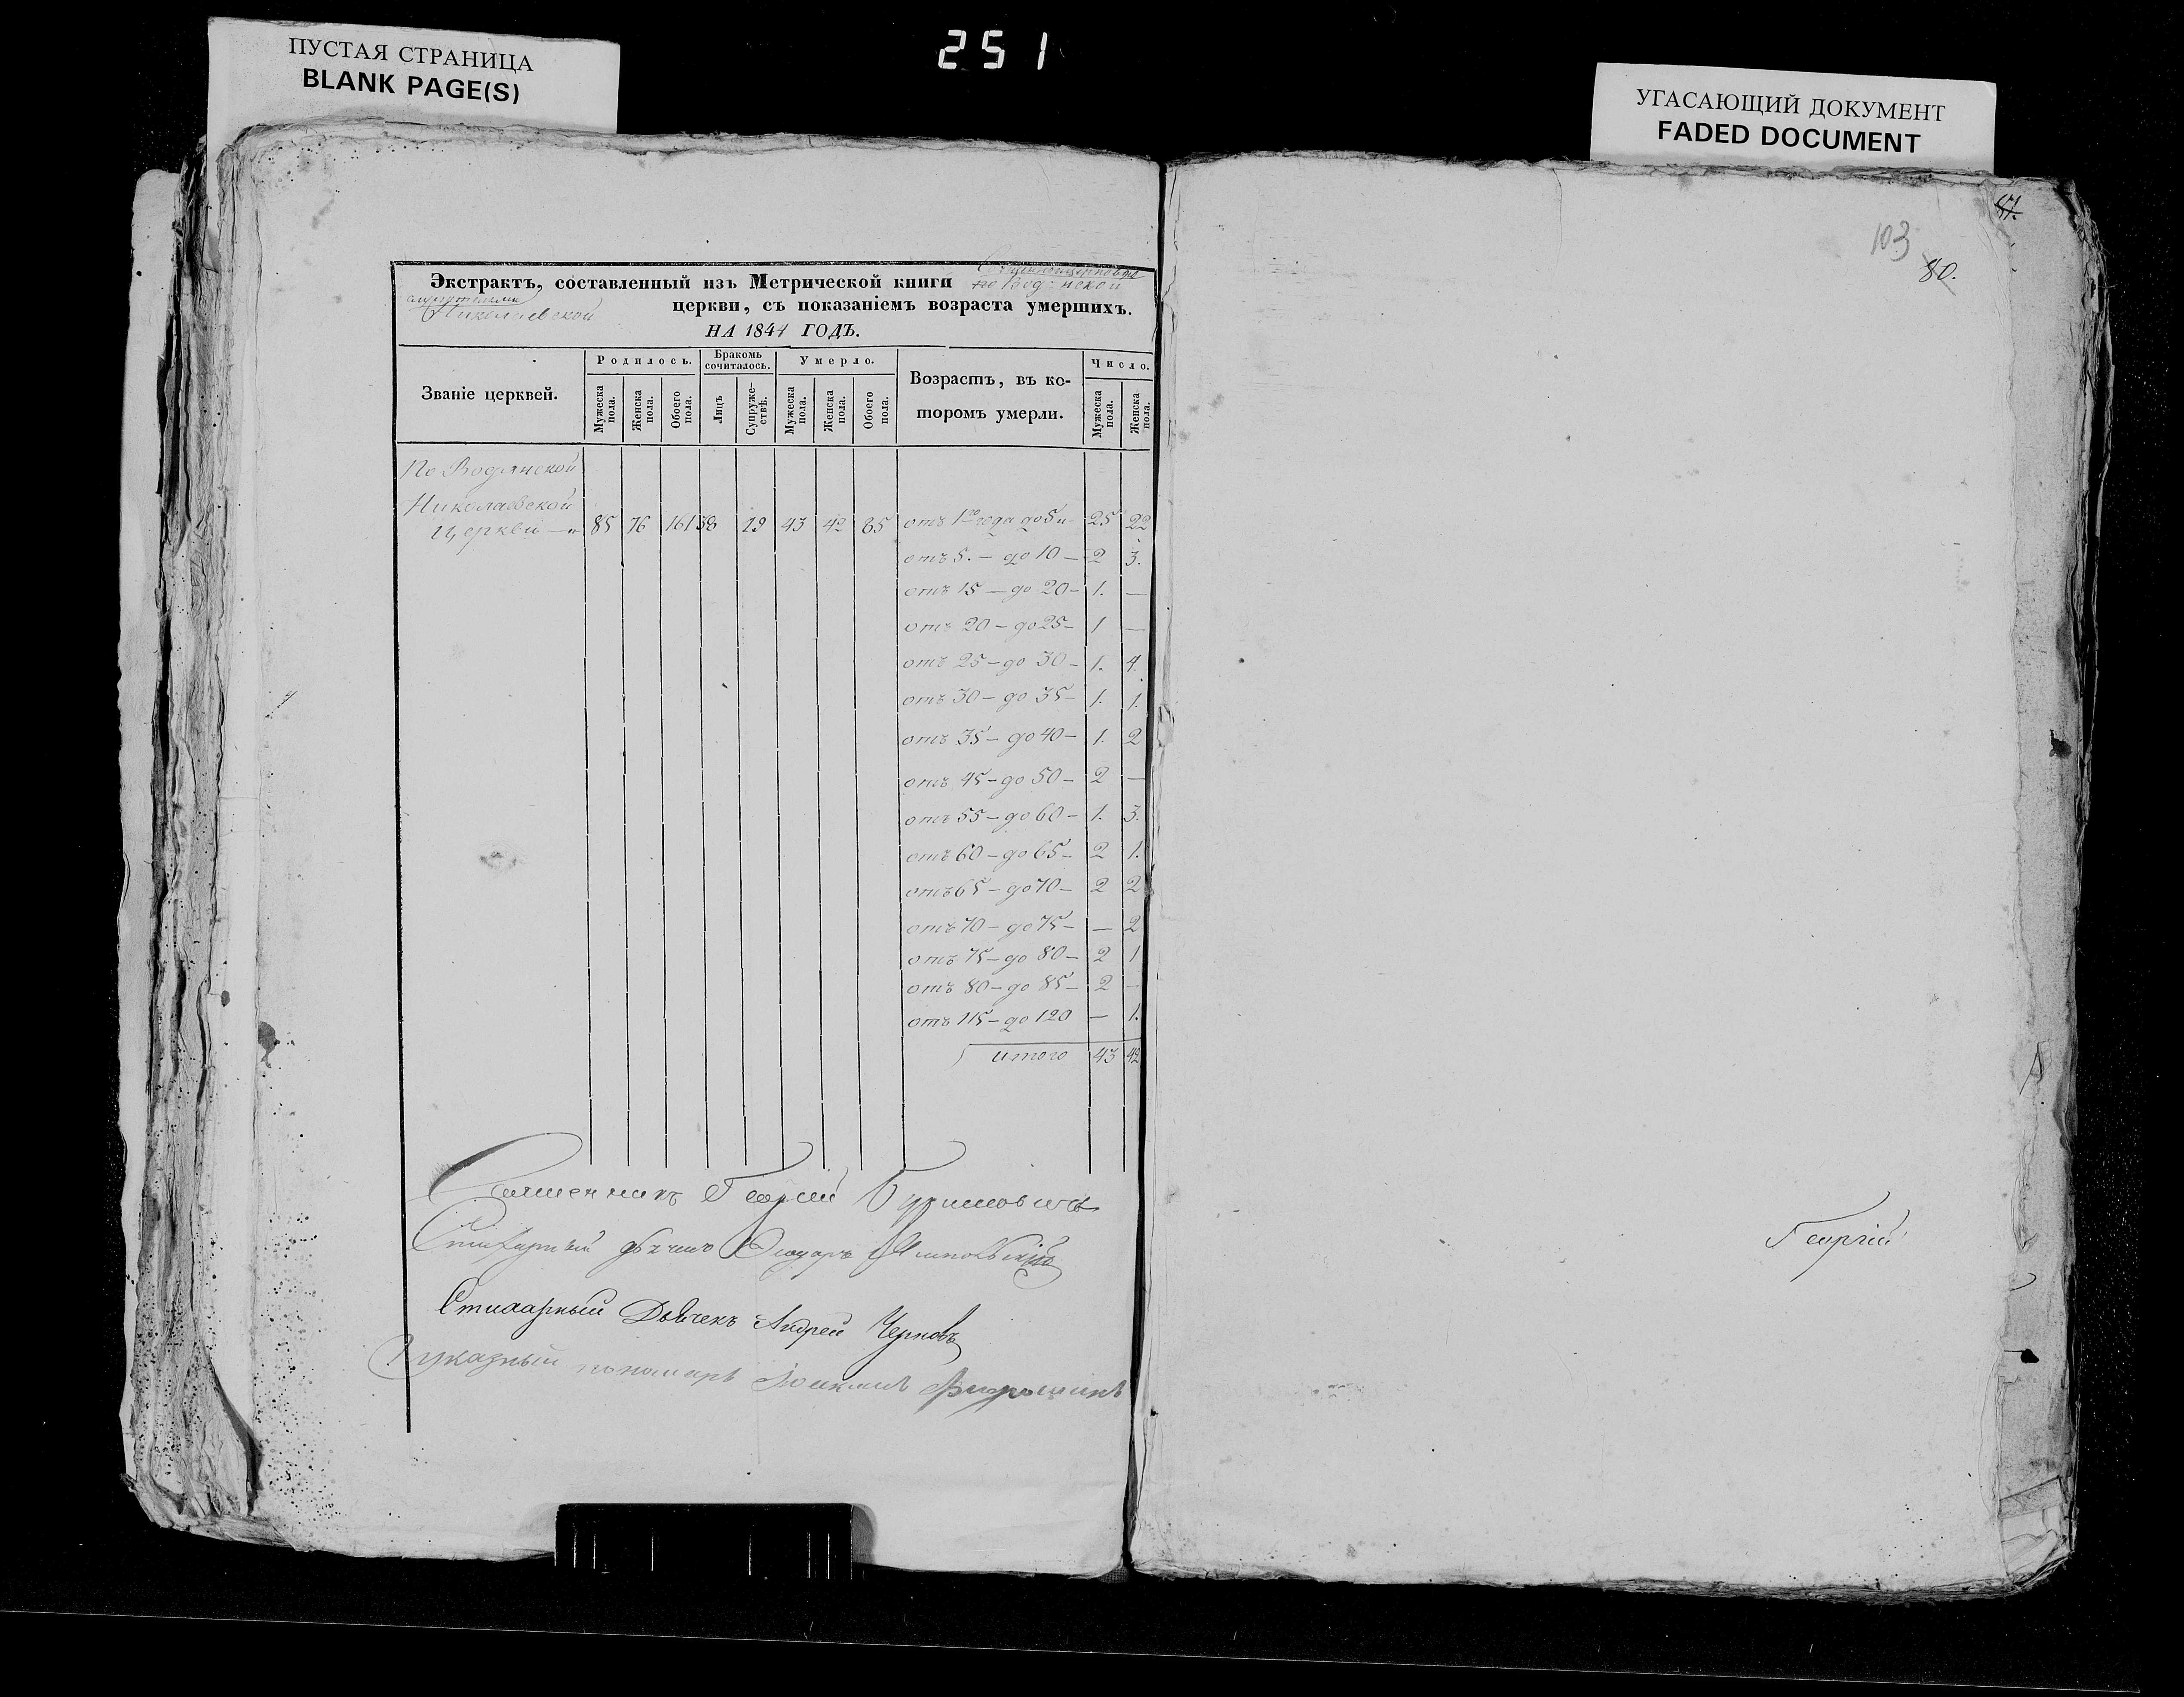 ПУСТАЯ СТРАНИЦА
BLANK PAGE(S)
251
УГАСАЮЩИЙ ДОКУМЕНТ
FADED DOCUMENT
Экстрактъ, составленный изъ Метрической книги
Николаевской церкви, съ показаніемъ возраста умершихъ.
НА 1841 ГОДЪ.
Званіе церквей.
Родилось.
Бракомъ сочиталось.
Умерло.
Возрастъ, въ ко-
торомъ умерли.
Число.
Мужеска пола.
Женска пола.
Обоего пола.
Лицъ
Супруже-
ствъ.
Мужеска пола.
Женска пола.
Обоего пола.
Мужеска пола.
Женска пола.
По Водянской
Николаевской
Церкви — 85 76 161 38 19 43 42 85 отъ 1го года до 5и 25 22
отъ 5. — до 10 — 2 3.
отъ 15 — до 20 — 1. —
отъ 20 — до 25 — 1 —
отъ 25 — до 30 — 1. 4.
отъ 30 — до 35 — 1. 1.
отъ 35 — до 40 — 1. 2
отъ 45 — до 50 — 2 —
отъ 55 — до 60 — 1. 3.
отъ 60 — до 65 — 2 1.
отъ 65 — до 70 — 2 2
отъ 70 — до 75 — — 2
отъ 75 — до 80 — 2 1
отъ 80 — до 85 — 2 —
отъ 115 — до 120 — 1.
итого 43 42
Священникъ Георгій
Стихарный дьячекъ
Стихарный Дьячекъ Андрей Черновъ
указный пономарь
103
80.
Георгій